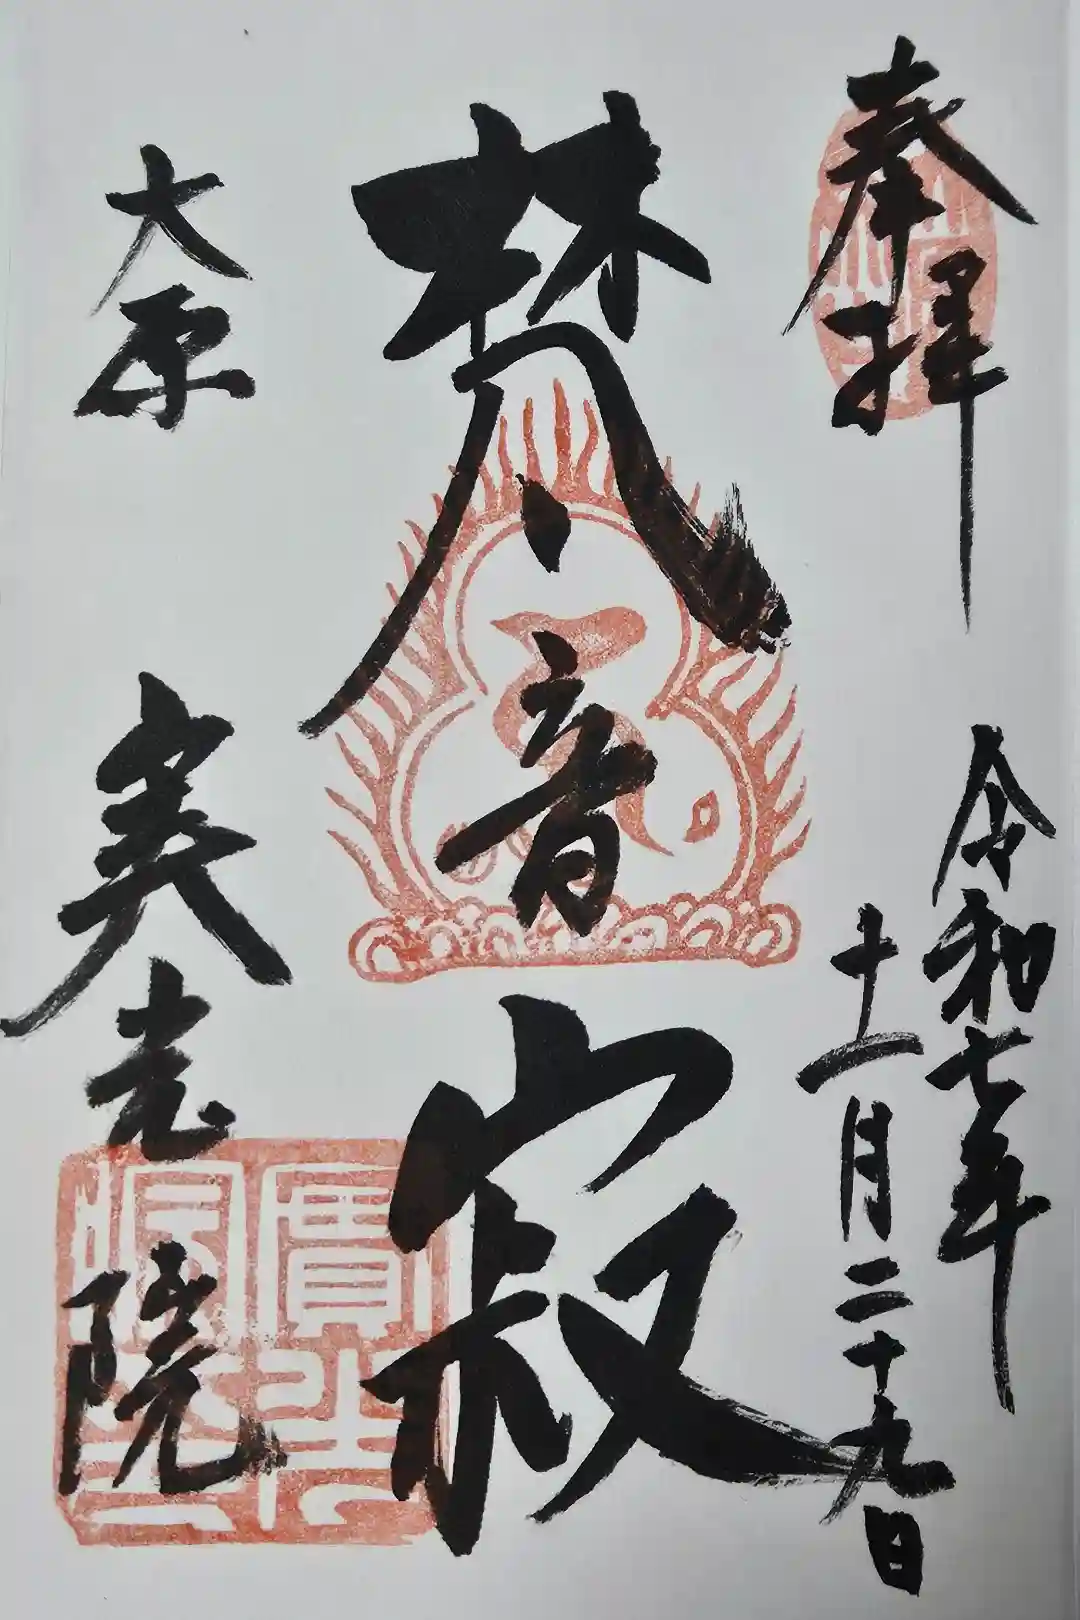 奉拝
令和七年
十一月二十九日
梵音寂
大原
実光院